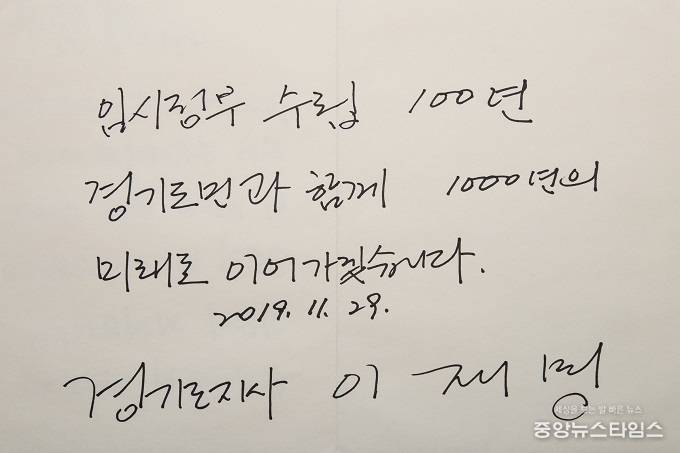 임시정부 수립 100년
경기도민과 함께 1000년의
미래로 이어가겠습니다.
2019. 11. 29.
경기도지사 이재명
세상을 보는 발 빠른 뉴스
중앙뉴스타임스